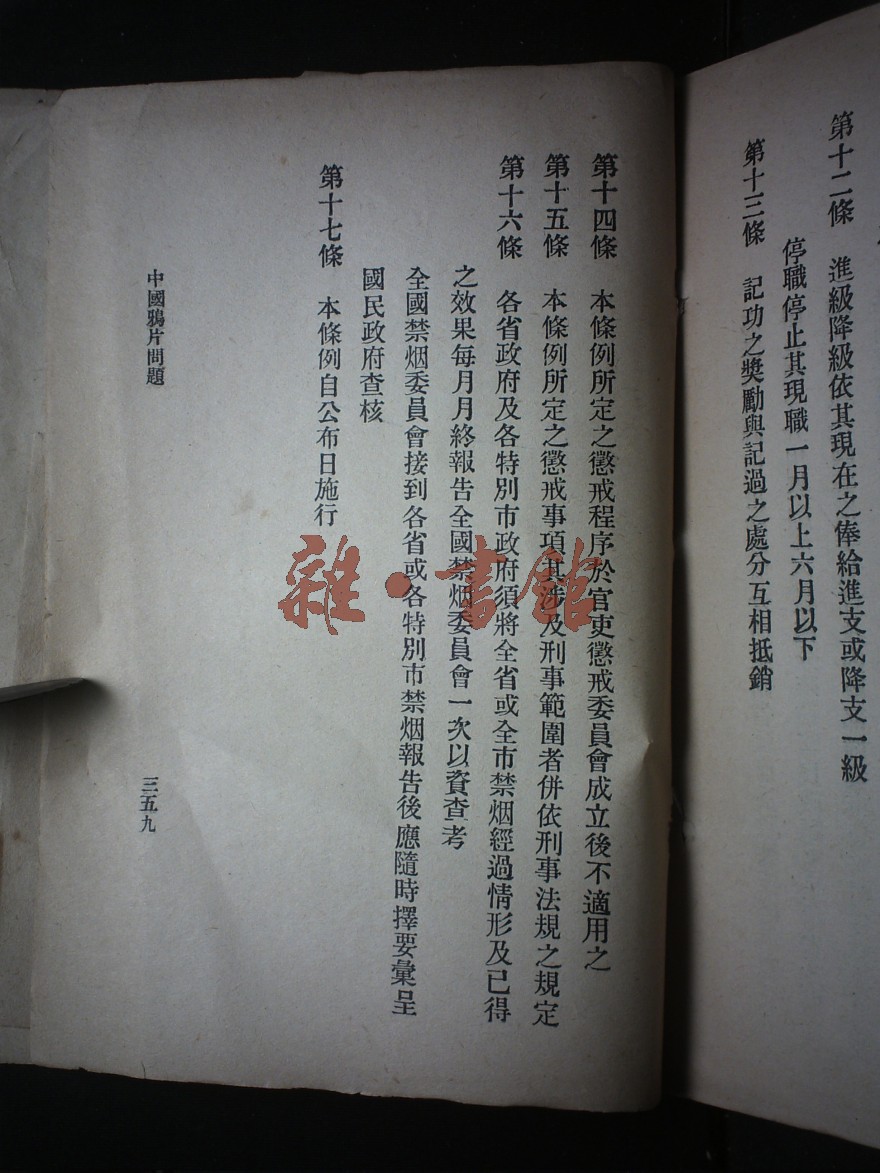 第十二條　進級降級依其現在之俸給進支或降支一級
停職停止其現職一月以上六月以下
第十三條　記功之獎勵與記過之處分互相抵銷
第十四條　本條例所定之懲戒程序於官吏懲戒委員會成立後不適用之
第十五條　本條例所定之懲戒事項其涉及刑事範圍者併依刑事法規之規定
第十六條　各省政府及各特別市政府須將全省或全市禁烟經過情形及已得
之效果每月月終報告全國禁烟委員會一次以資查考
全國禁烟委員會接到各省或各特別市禁烟報告後應隨時擇要彙呈
國民政府查核
第十七條　本條例自公布日施行
中國鴉片問題
三五九
雜·書館